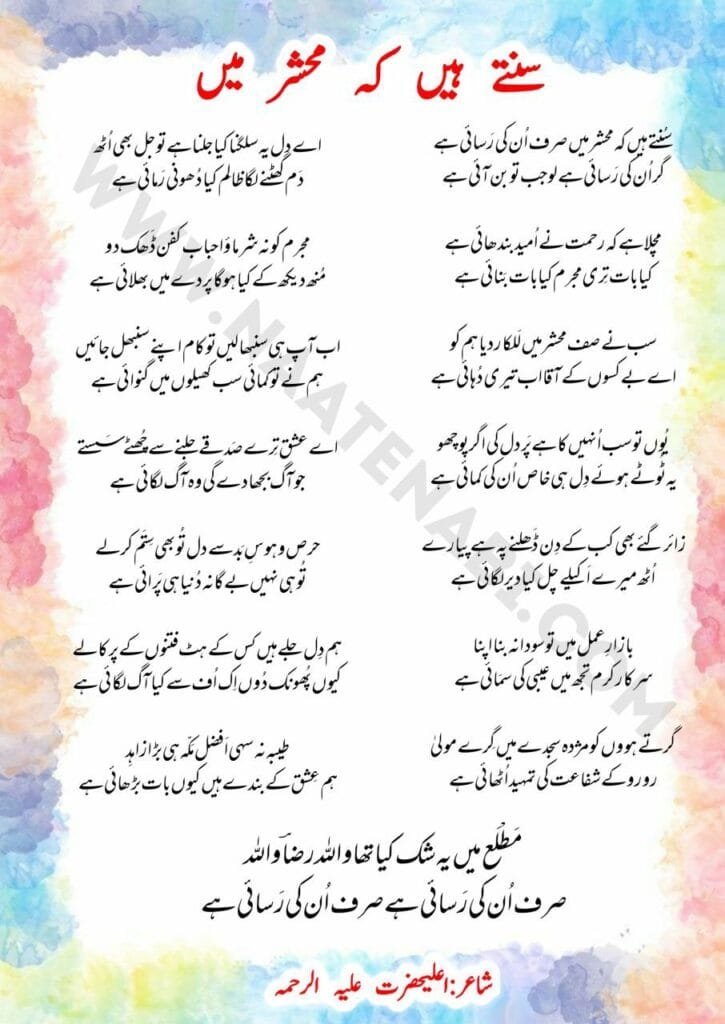 سنتے ہیں کہ محشر میں
سُنتے ہیں کہ محشر میں صرف اُن کی رَسائی ہے
گر اُن کی رَسائی ہے لو جب تو بن آئی ہے
مچلا ہے کہ رحمت نے اُمید بندھائی ہے
کیا بات تِری مجرم کیا بات بَنائی ہے
سب نے صف محشر میں لَلکار دیا ہم کو
اے بے کسوں کے آقا اب تیری دُہائی ہے
یُوں تو سب اُنہیں کا ہے پَر دل کی اگر پوچھو
یہ ٹوٹے ہوئے دِل ہی خاص اُن کی کمائی ہے
زائر گئے بھی کب کے دِن ڈَھلنے پہ ہے پیارے
اُٹھ میرے اَکیلے چل کیا دیر لگائی ہے
بازارِ عمل میں تو سودا نہ بنا اپنا
سرکار کرم تجھ میں عیبی کی سَمائی ہے
گرتے ہووں کو مژدہ سجدے میں گِرے مولیٰ
رو رو کے شفاعت کی تمہید اُٹھائی ہے
اے دِل یہ سلگنا کیا جلنا ہے تو جل بھی اُٹھ
دَم گُھٹنے لگا ظالم کیا دُھونی رَمائی ہے
مجرم کو نہ شرماؤ احباب کفن ڈَھک دو
مُنھ دیکھ کے کیا ہوگا پردے میں بھلائی ہے
اب آپ ہی سنبھالیں تو کام اپنے سنبھل جائیں
ہم نے تو کمائی سب کھیلوں میں گنوائی ہے
اے عشق تِرے صَدقے جلنے سے چُھٹے سَستے
جو آگ بجھا دے گی وہ آگ لگائی ہے
حرص و ہوسِ بَد سے دل تُو بھی سِتَم کر لے
تُو ہی نہیں بے گانہ دُنیا ہی پَرائی ہے
ہم دِل جلے ہیں کس کے ہٹ فتنوں کے پرکالے
کیوں پُھونک دُوں اِک اُف سے کیا آگ لگائی ہے
طیبہ نہ سہی اَفضل مکّہ ہی بڑا زاہِد
ہم عشق کے بندے ہیں کیوں بات بڑھائی ہے
مَطْلَع میں یہ شک کیا تھا واللہ رضاؔ واللہ
صرف اُن کی رَسائی ہے صرف اُن کی رَسائی ہے
شاعر:اعلیحضرت علیہ الرحمہ
WWW.NAATENABI.COM